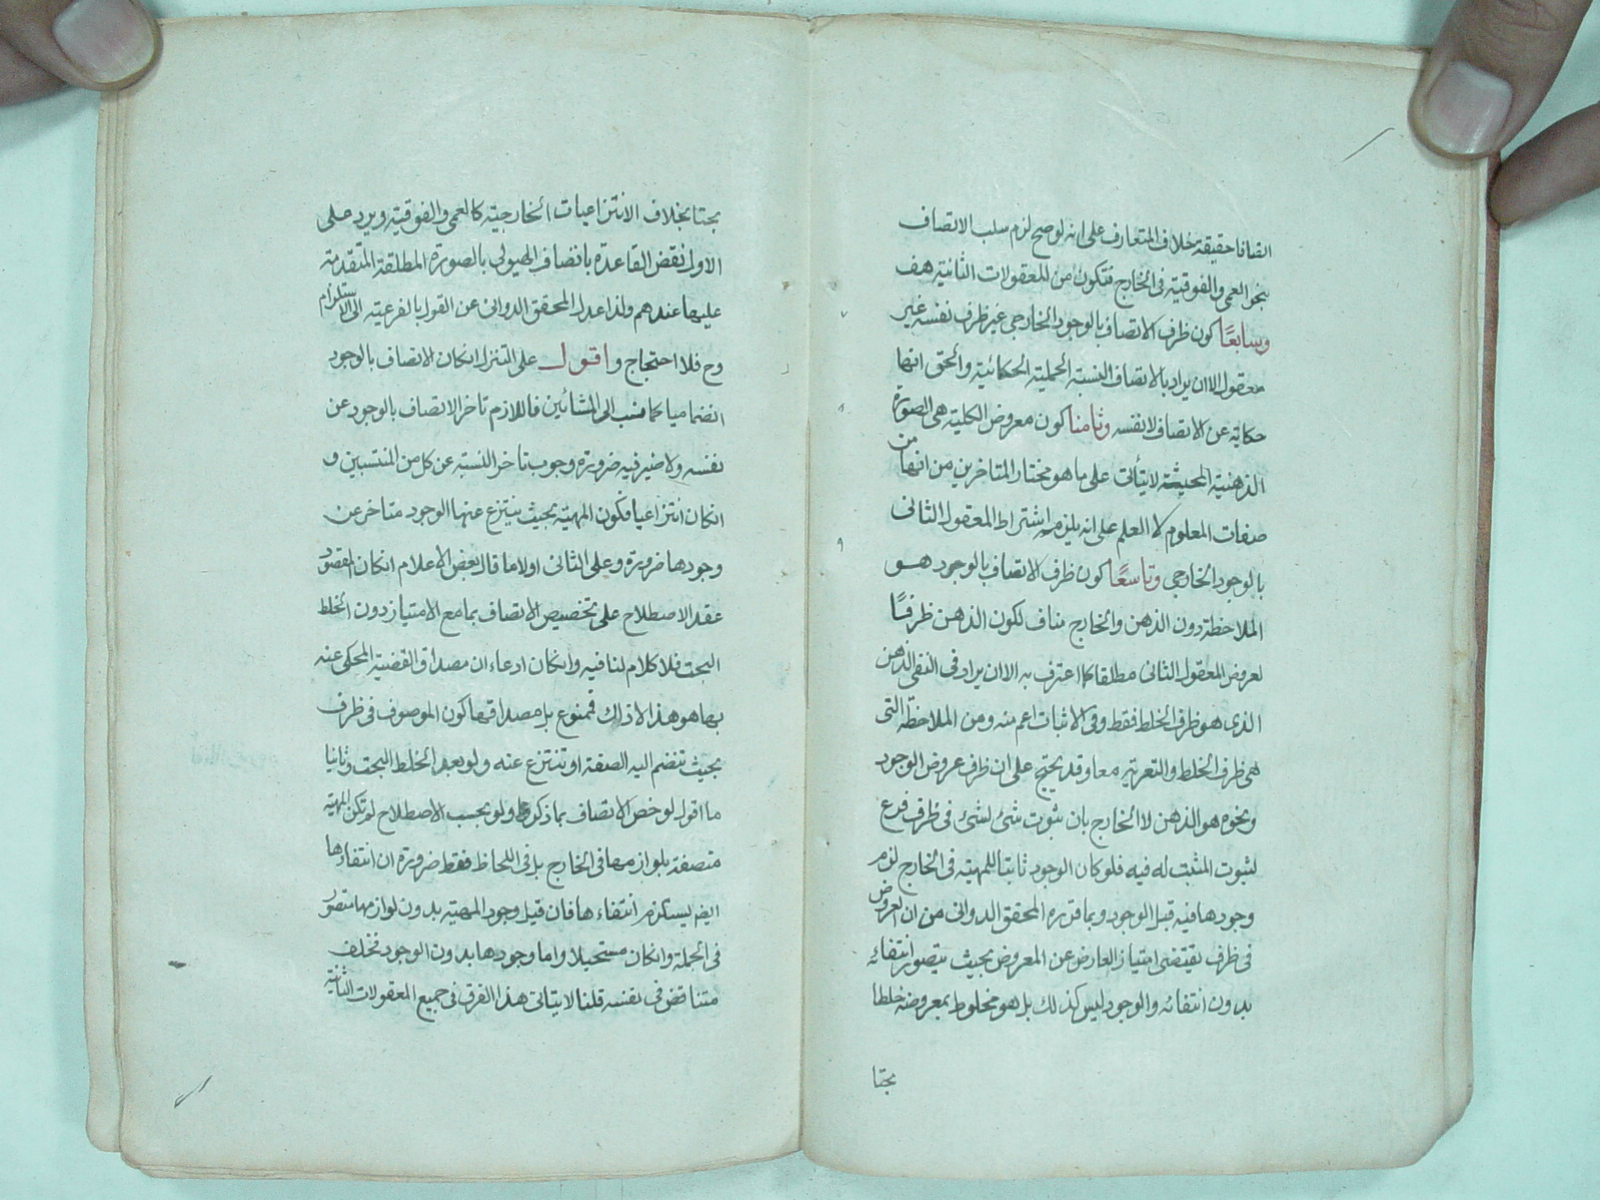 اتصافا حقيقة خلاف المتعارف على انه لو صح لزم سلب الاتصاف
بنحو العمى والفوقية فى الخارج فتكون من المعقولات الثانية هف
وسابعًا كون ظرف الاتصاف بالوجود الخارجى غير ظرف نفسه غير
معقول الا ان يراد بالاتصاف النسبة الحملية الحكائية والحق انها
حكاية عن الاتصاف لا نفسه وثامنا كون معروض الكلية هى الصورة
الذهنية المحيثة لا يتأتى على ما هو مختار المتاخرين من انها من
صفات المعلوم لا العلم على انه يلزمه اشتراط المعقول الثانى
بالوجود الخارجى وتاسعًا كون ظرف الاتصاف بالوجود هو
الملاحظة دون الذهن والخارج مناف لكون الذهن ظرفًا
لعروض المعقول الثانى مطلقا كما اعترف به الا ان يراد فى النفى الذهن
الذى هو ظرف الخلط فقط وفى الاثبات اعم منه ومن الملاحظة التى
هى ظرف الخلط والتعرية معا وقد يحتج على ان ظرف عروض الوجود
ونحوه هو الذهن لا الخارج بان ثبوت شئ لشئ فى ظرف فرع
لثبوت المثبت له فيه فلو كان الوجود ثابتا للمهية فى الخارج لزم
وجودها فيه قبل الوجود وبما قرره المحقق الدوانى من ان العروض
فى ظرف يقتضى امتياز العارض عن المعروض بحيث يتصور انتفائه
بدون انتفائه والوجود ليس كذلك بل هو مخلوط بمعروضه خلطا
بحتا
بحتا بخلاف الانتزاعيات الخارجية كالعمى والفوقية ويرد على
الاول نقض القاعدة باتصاف الهيولى بالصورة المطلقة المتقدمة
عليها عندهم ولذا عدل المحقق الدوانى عن القول بالفرعية الى الاستلزام
وح فلا احتجاج واقول على التنزل ان كان الاتصاف بالوجود
انضماميا كما نسب الى المشائين فاللازم تاخر الاتصاف بالوجود عن
نفسه ولا ضير فيه ضرورة وجوب تاخر النسبة عن كل من المنتسبين و
ان كان انتزاعيا فكون المهية بحيث ينتزع عنها الوجود متاخر عن
وجودها ضرورة وعلى الثانى اولا ما قال بعض الاعلام ان كان المقصود
عقد الاصطلاح على تخصيص الاتصاف بما مع الامتياز دون الخلط
البحت فلا كلام لنا فيه وان كان ادعاء ان مصداق القضية المحكى عنه
بها هو هذا لا ذاك فممنوع بل مصداقها كون الموصوف فى ظرف
بحيث تنضم اليه الصفة او تنتزع عنه ولو بعد الخلط البحت وثانيا
ما اقول لو خص الاتصاف بما ذكر ولو بحسب الاصطلاح لم تكن المهية
متصفة بلوازمها فى الخارج بل فى اللحاظ فقط ضرورة ان انتفاءها
ايضا يستلزم انتفاءها فان قيل وجود المهية بدون لوازمها متصور
فى الجملة وان كان مستحيلا واما وجودها بدون الوجود فخلف
متناقض فى نفسه قلنا لا يتاتى هذا الفرق فى جميع المعقولات الثانية